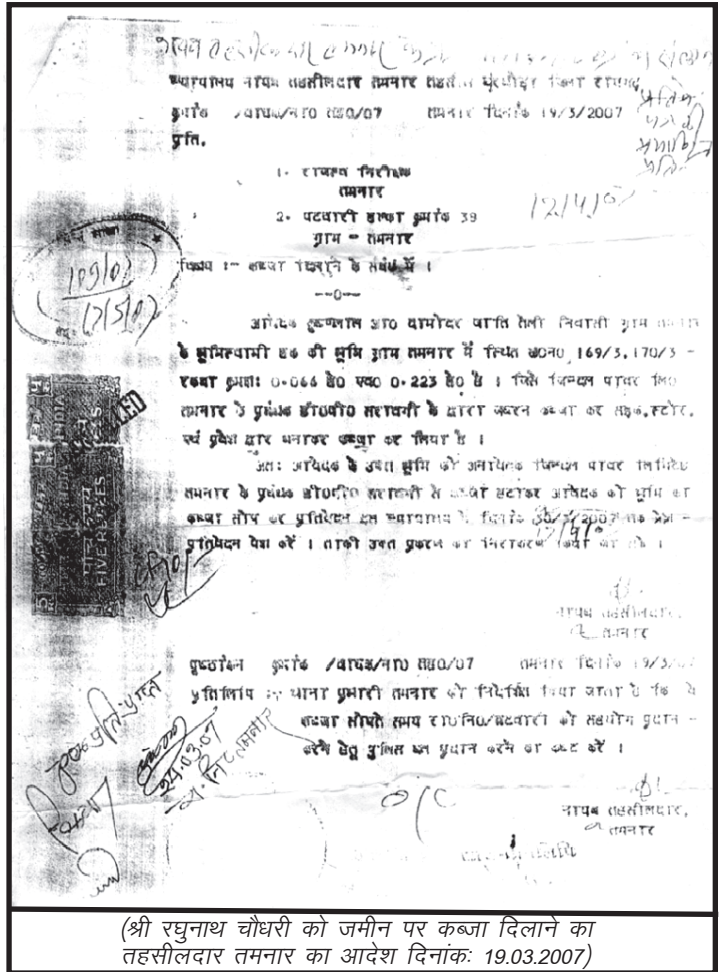 न्यायालय नायब तहसीलदार तमनार तहसील घरघोड़ा जिला रायगढ़
क्रमांक /वाचक/ना0 तह0/07 तमनार दिनांक 19/3/2007
प्रति,
1- राजस्व निरीक्षक
तमनार
2- पटवारी हल्का क्रमांक 39
ग्राम - तमनार
12/4/07
विषय :- कब्जा दिलाने के संबंध में ।
--0--
109/07
17/5/07
आवेदक कृष्णलाल आ0 दामोदर जाति तेली निवासी ग्राम तमनार
के भूमिस्वामी हक की भूमि ग्राम तमनार में स्थित ख0न0 169/3, 170/3 -
रकबा क्रमशः 0.066 हे0 एवं 0.223 हे0 है । जिसे जिन्दल पावर लि0
तमनार के प्रबंधक डी0पी0 सरावगी के द्वारा जबरन कब्जा कर सड़क, स्टोर,
एवं प्रवेश द्वार बनाकर कब्जा कर लिया है ।
अतः आवेदक के उक्त भूमि को अनावेदक जिन्दल पावर लिमिटेड
तमनार के प्रबंधक डी0पी0 सरावगी से कब्जा हटाकर आवेदक को भूमि का
कब्जा सौंप कर प्रतिवेदन इस न्यायालय में दिनांक 30/3/2007 तक
प्रतिवेदन पेश करें । ताकी उक्त प्रकरण का निराकरण किया जा सके ।
INDIA
पाँच रुपये
FIVE RUPEES
नायब तहसीलदार,
तमनार
पृष्ठांकन क्रमांक /वाचक/ना0 तह0/07 तमनार दिनांक 19/3/07
प्रतिलिपि :- थाना प्रभारी तमनार को निर्देशित किया जाता है कि वे
कब्जा सौंपते समय रा0नि0/पटवारी को सहयोग प्रदान -
करने हेतु पुलिस बल प्रदान करने का कष्ट करें ।
24.03.07
O/C
नायब तहसीलदार,
तमनार
(श्री रघुनाथ चौधरी को जमीन पर कब्जा दिलाने का
तहसीलदार तमनार का आदेश दिनांकः 19.03.2007)